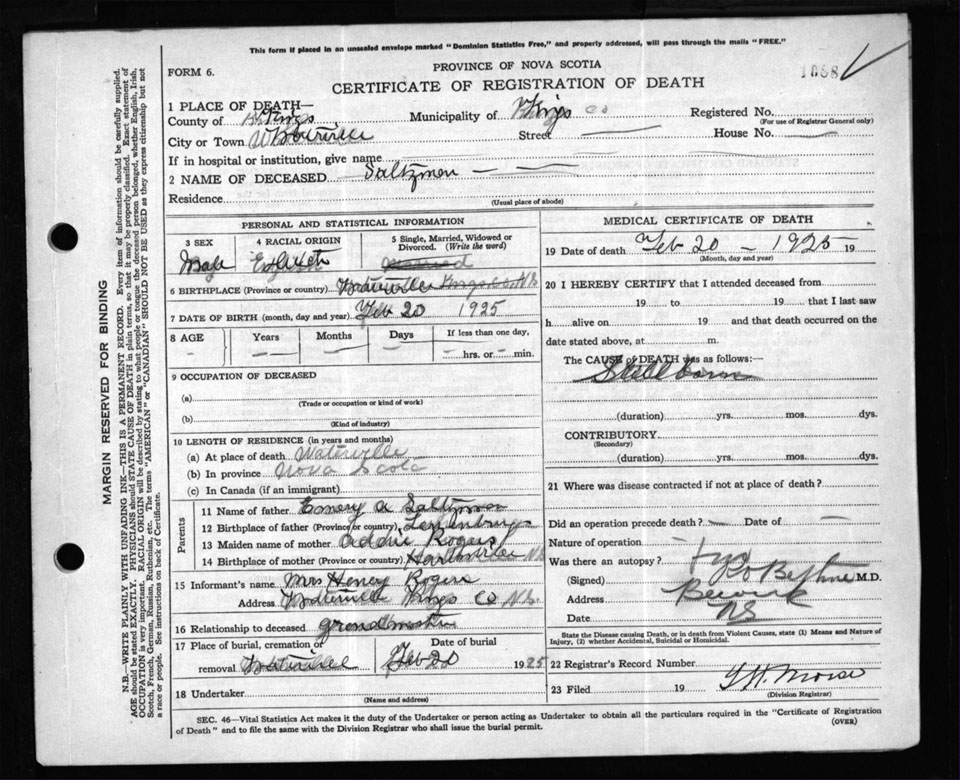 This form if placed in an unsealed envelope marked "Dominion Statistics Free," and properly addressed, will pass through the mails "FREE."
FORM 6.
PROVINCE OF NOVA SCOTIA
CERTIFICATE OF REGISTRATION OF DEATH
1 PLACE OF DEATH—
County of Kings Municipality of Kings Co Registered No.
(For use of Registrar General only)
City or Town Waterville Street — House No. —
If in hospital or institution, give name
2 NAME OF DECEASED Saltzman — —
Residence
(Usual place of abode)
PERSONAL AND STATISTICAL INFORMATION
3 SEX 4 RACIAL ORIGIN 5 Single, Married, Widowed or Divorced. (Write the word)
Male English
6 BIRTHPLACE (Province or country) Waterville Kings Co N.S.
7 DATE OF BIRTH (month, day and year) Feb 20 1925
8 AGE Years Months Days If less than one day,
— — — — — hrs. or — min.
9 OCCUPATION OF DECEASED
(a)
(Trade or occupation or kind of work)
(b)
(Kind of industry)
10 LENGTH OF RESIDENCE (in years and months)
(a) At place of death Waterville
(b) In province Nova Scotia
(c) In Canada (if an immigrant)
Parents
11 Name of father Emery A Saltzman
12 Birthplace of father (Province or country)
13 Maiden name of mother Addie Rogers
14 Birthplace of mother (Province or country) N.S.
15 Informant's name Mrs Henry Rogers
Address Waterville Kings Co N.S.
16 Relationship to deceased grandmother
17 Place of burial, cremation or removal Waterville Date of burial Feb 1925
18 Undertaker
(Name and address)
MEDICAL CERTIFICATE OF DEATH
19 Date of death Feb 20 — 1925 19
(Month, day and year)
20 I HEREBY CERTIFY that I attended deceased from
19 to 19 that I last saw
h alive on 19 and that death occurred on
date stated above, at m.
The CAUSE of DEATH was as follows:—
Still born
(duration) yrs. mos. dys.
CONTRIBUTORY
(Secondary)
(duration) yrs. mos. dys.
21 Where was disease contracted if not at place of death?
Did an operation precede death? — Date of —
Nature of operation —
Was there an autopsy?
(Signed) M.D.
Address Berwick
Date NS
State the Disease causing Death, or in death from Violent Causes, state (1) Means and Nature of
Injury, (2) whether Accidental, Suicidal or Homicidal.
22 Registrar's Record Number
23 Filed 19 Morse
(Division Registrar)
SEC. 46—Vital Statistics Act makes it the duty of the Undertaker or person acting as Undertaker to obtain all the particulars required in the "Certificate of Registration
of Death" and to file the same with the Division Registrar who shall issue the burial permit.
(OVER)
MARGIN RESERVED FOR BINDING
N.B.—WRITE PLAINLY WITH UNFADING INK—THIS IS A PERMANENT RECORD. Every item of information should be carefully supplied.
AGE should be stated EXACTLY. PHYSICIANS should STATE CAUSE OF DEATH in plain terms, so that it may be properly classified. Exact statement of
OCCUPATION is very important. RACIAL ORIGIN will be described by stating to what people or tongue the deceased person belonged, whether English, Irish,
Scotch, French, German, Russian, Ruthenian, etc. The terms "AMERICAN" or "CANADIAN" SHOULD NOT BE USED as they express citizenship but not
a race or people. See instructions on back of Certificate.